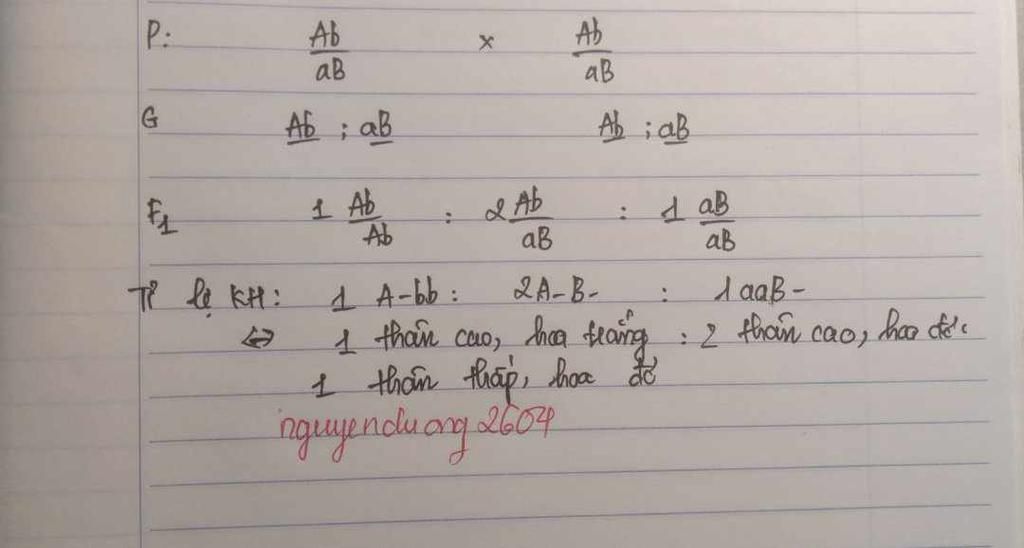 P: Ab/aB x Ab/aB
G Ab ; aB Ab ; aB
F1 1 Ab/Ab : 2 Ab/aB : 1 aB/aB
Tỉ lệ KH: 1 A-bb : 2A-B- : 1aaB-
⇔ 1 thân cao, hoa trắng : 2 thân cao, hoa đỏ:
1 thân thấp, hoa đỏ
nguyenduong2604